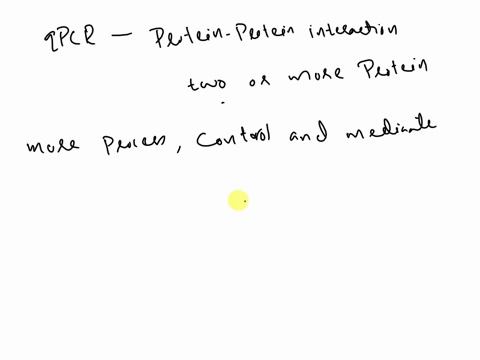 qPCR — Protein-Protein interaction
two or more Protein
more Process, Control and mediate